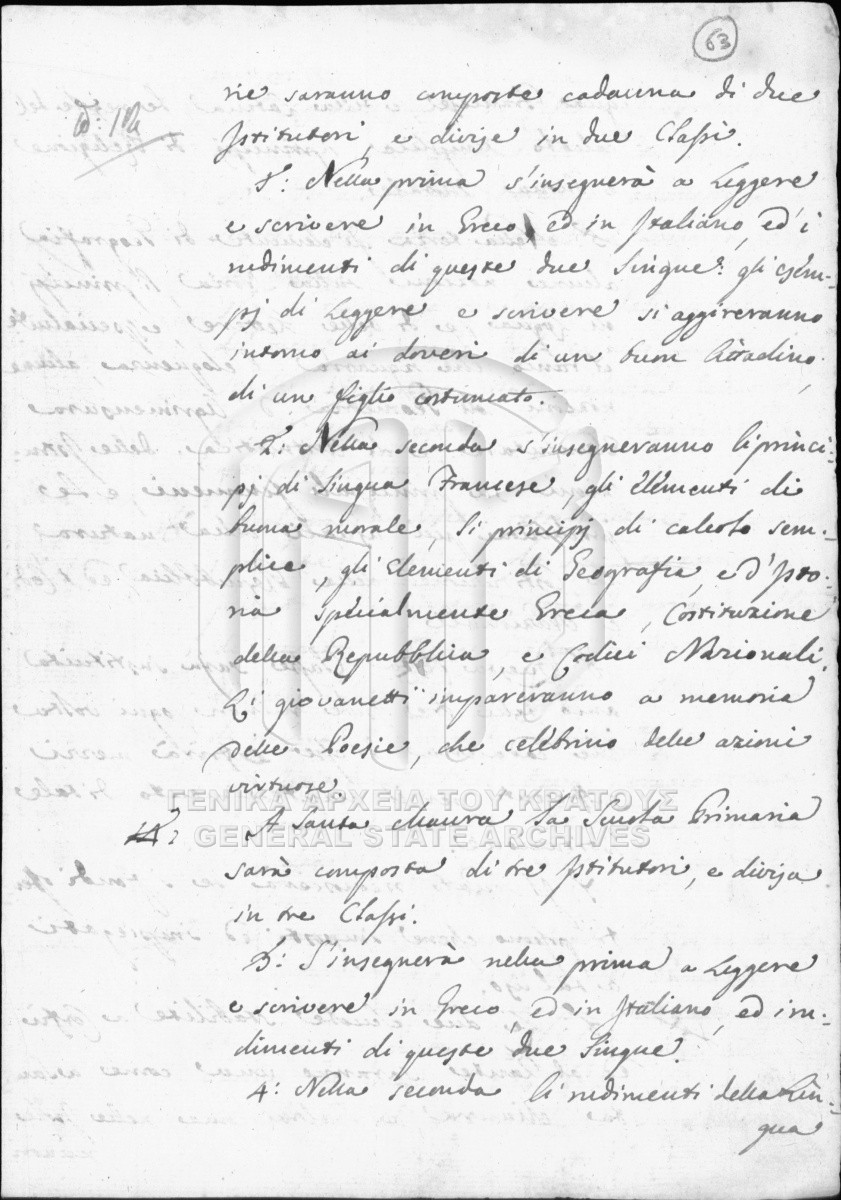 63
rie saranno composte cadauna di due
Istitutori, e divise in due Classi.
1: Nella prima s'insegnerà a Leggere
e scrivere in Greco, ed in Italiano, ed i
rudimenti di queste due Lingue: gli esem-
pj di Leggere e scrivere si aggireranno
intorno ai doveri di un buon Cittadino,
di un figlio costumato.
2: Nella seconda s'insegneranno li princi-
pj di Lingua Francese, gli Elementi di
buona morale, Li principj di calcolo sem-
plice, gli Elementi di Geografia, e d'Isto-
ria specialmente Greca, Costituzione
della Repubblica, e Codici Nazionali.
Li giovanetti impareranno a memoria
delle Poesie, che celebrino delle azioni
virtuose.
ΓΕΝΙΚΑ ΑΡΧΕΙΑ ΤΟΥ ΚΡΑΤΟΥΣ
A Santa Maura La Scuola Primaria
GENERAL STATE ARCHIVES
sarà composta di tre Istitutori, e divisa
in tre Classi.
3: S'insegnerà nella prima a Leggere
e scrivere in Greco, ed in Italiano, ed i ru-
dimenti di queste due Lingue.
4: Nella seconda li rudimenti della Lin-
gua